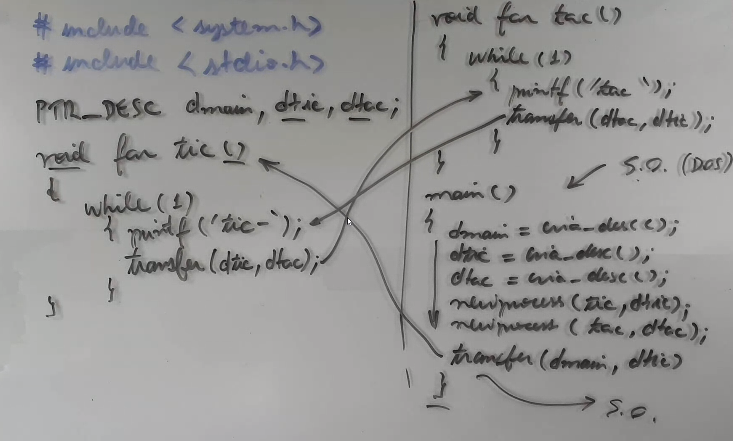 # include <system.h>
# include <stdio.h>
PTR_DESC dmain, dtic, dtac;
void far tic()
{
while(1)
{ printf('tic-`);
transfer(dtic, dtac);
}
}
void far tac()
{
while(1)
{ printf('tac `);
transfer(dtac, dtic);
}
}
S.O. (DOS)
main()
{
dmain = cria_desc();
dtic = cria_desc();
dtac = cria_desc();
newprocess(tic, dtic);
newprocess(tac, dtac);
transfer(dmain, dtic)
}
S.O.